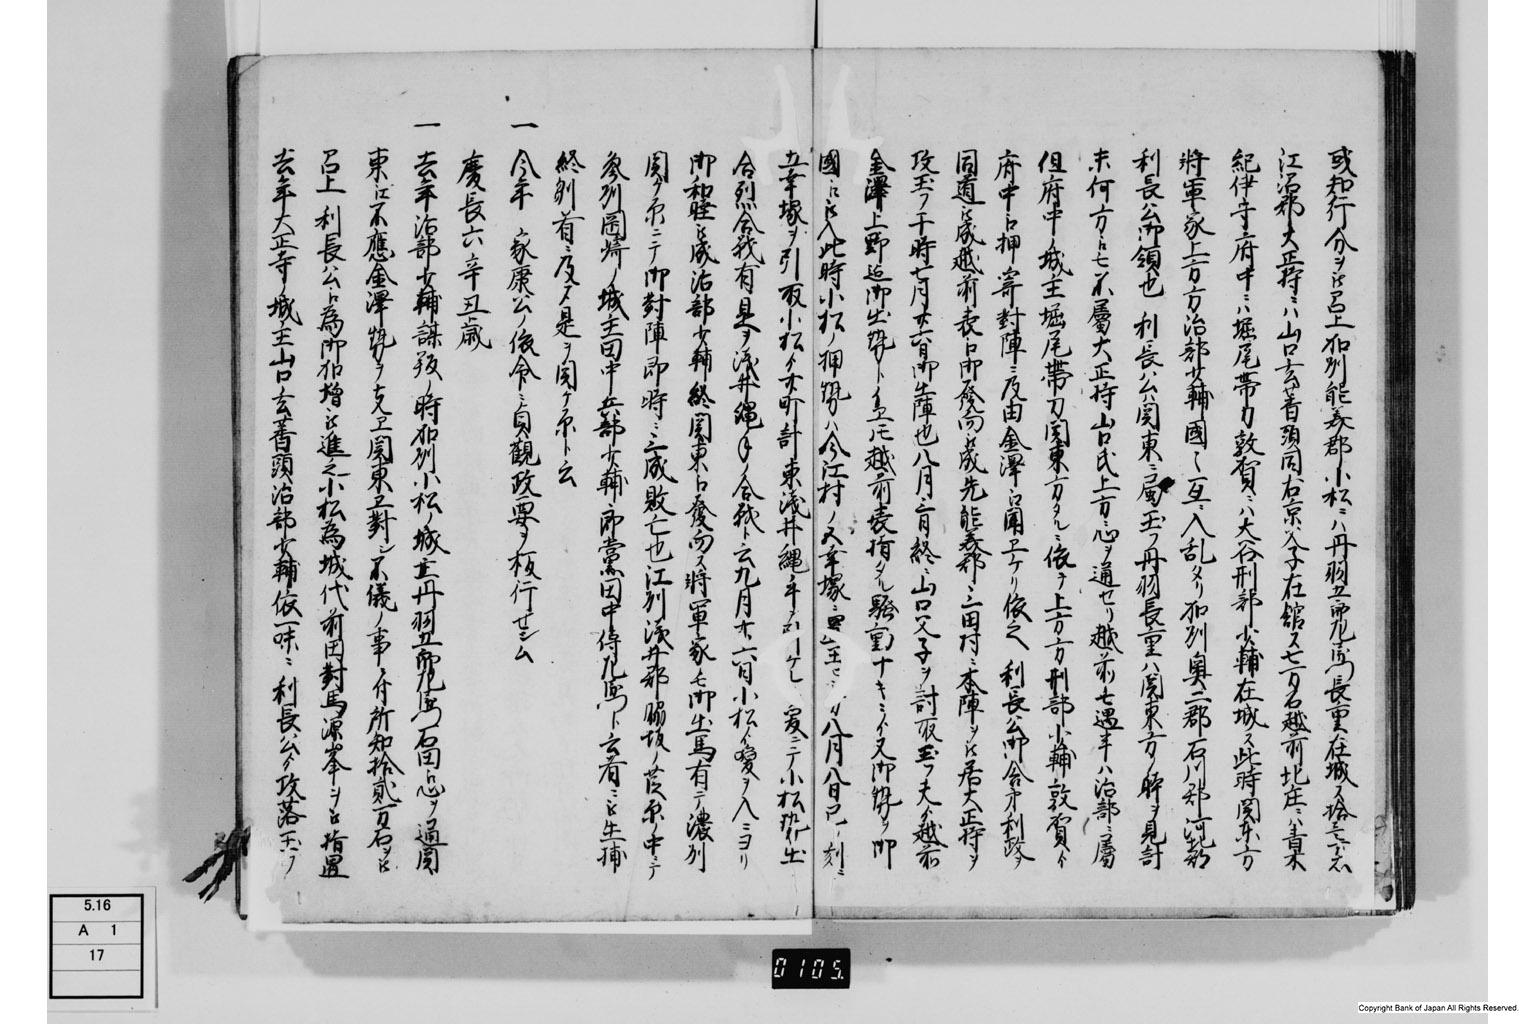 或知行分ヲ被召上加刕能美郡小松ニハ丹羽五郎左衛門長重在城ス
江沼郡大正持ニハ山口玄蕃頭同右京父子在館ス七万石越前北庄ニハ青木
紀伊守府中ニハ堀尾帯刀敦賀ニハ大谷刑部少輔在城ス此時関东方
将軍家上方方治部少輔國々互ニ入乱タリ加刕奥二郡石川郡河北郡
利長公御領也 利長公ハ関東ニ属玉フ丹羽長重ハ関東方ノ躰ヲ見計
未何方ニモ不屬大正持山口氏上方ニ心ヲ通セリ越前七過半ハ治部ニ屬
但府中ノ城主堀尾帯刀関東方タルニ依ヲ上方方刑部小輔敦賀ゟ
府中ニ押寄對陣ニ及由金澤ニ聞ヱケリ依之 利長公御舎弟利政ヲ
同道被成越前表ニ御發向被成先能美郡三田村ニ本陣ヲ被居大正持ヲ
攻玉フ于時七月廿六日御出陣也八月三日終ニ山口父子ヲ討取玉フ夫ゟ越前
金澤上野迄御出勢トイヱ𪜈越前表指タル騒動ナキニゟ又御勢ヲ御
國ニ被入此時小松ノ押勢ハ今江村ノ又幸塚ニ 八月八日巳ノ刻ニ
五幸塚ヲ引取小松ゟ廿町計東浅井縄手 爰ニテ小松勢出
合烈合戦有是ヲ浅井縄手ノ合戦ト云九月廿六日小松ゟ 入ニヨリ
御和睦被成治部少輔終関東ニ發向ス将軍家モ御出馬有テ濃刕
関ケ原ニテ御對陣即時ニ三成敗亡也江刕浅井郡脇坂ノ 原ノ中ニテ
参刕岡崎ノ城主田中兵部少輔郎黨田中傳左衛門ト云者ニ被生捕
終刎首ニ及フ是ヲ関ケ原ト云
一 今年 家康公ノ依命ニ貞観政要ヲ板行せシム
慶長六辛丑歳
一 去年治部少輔謀叛ノ時加刕小松ノ城主丹羽五郎左衛門石田ニ心ヲ通関
東ニ不應金澤勢ヲ支ヱ関東ヱ對シ不儀ノ事ニ付所知拾貳万石ヲ被
召上 利長公ニ為御加増被進之小松為城代前田對馬源峯ヲ被指置
去年大正寺ノ城主山口玄蕃頭治部少輔依一味ニ 利長公ゟ攻落玉ヲ
5.16
A 1
17
0105
Copyright Bank of Japan All Rights Reserved.